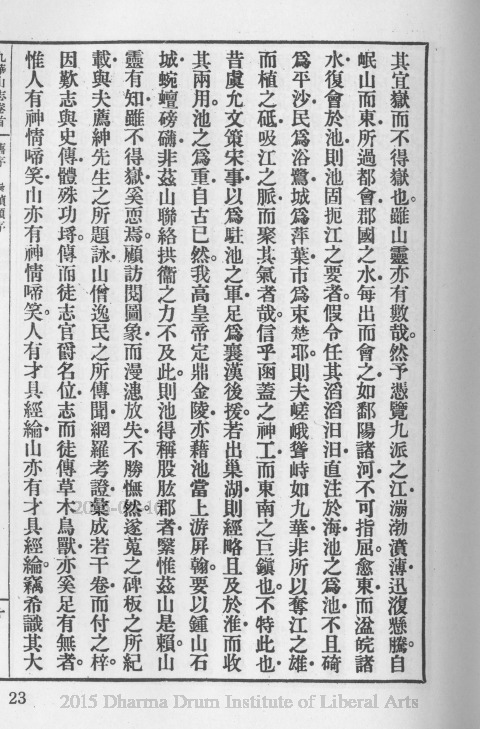 其宜嶽而不得嶽也。雖山靈亦有數哉。然予憑覽九派之江漰渤濆薄迅澓懸騰。自
岷山而東。所過都會。郡國之水。每出而會之。如鄱陽諸河。不可指屈。愈東而湓皖諸
水。復會於池。則池固扼江之要者。假令任其滔滔汩汩。直注於海。池之為池。不且碕
為平沙。民為浴鷺。城為萍葉。市為束楚耶。則夫嵯峨聳峙如九華。非所以奪江之雄。
而植之砥。吸江之脈。而聚其氣者哉。信乎函蓋之神工。而東南之巨鎮也。不特此也。
昔虞允文策宋事。以為駐池之軍。足為襄漢後援。若出巢湖。則經略且及於淮。而收
其兩用。池之為重。自古已然。我高皇帝定鼎金陵。亦藉池當上游屏翰。要以鍾山石
城。蜿蟺磅礴。非茲山聯絡拱衞之力不及此。則池得稱股肱郡者。緊惟茲山是賴。山
靈有知。雖不得嶽奚恧焉。顧訪閱圖象。而漫漶放失。不勝憮然。遂蒐之碑板之所紀
載。與夫薦紳先生之所題詠。山僧逸民之所傳聞。網羅考證。彙成若干卷。而付之梓。
因歎志與史傳。體殊功埒。傳而徒志官爵名位。志而徒傳草木鳥獸。亦奚足有無者。
惟人有神情啼笑。山亦有神情啼笑。人有才具經綸。山亦有才具經綸。竊希識其大
九華山志卷首
23
2015 Dharma Drum Institute of Liberal Arts